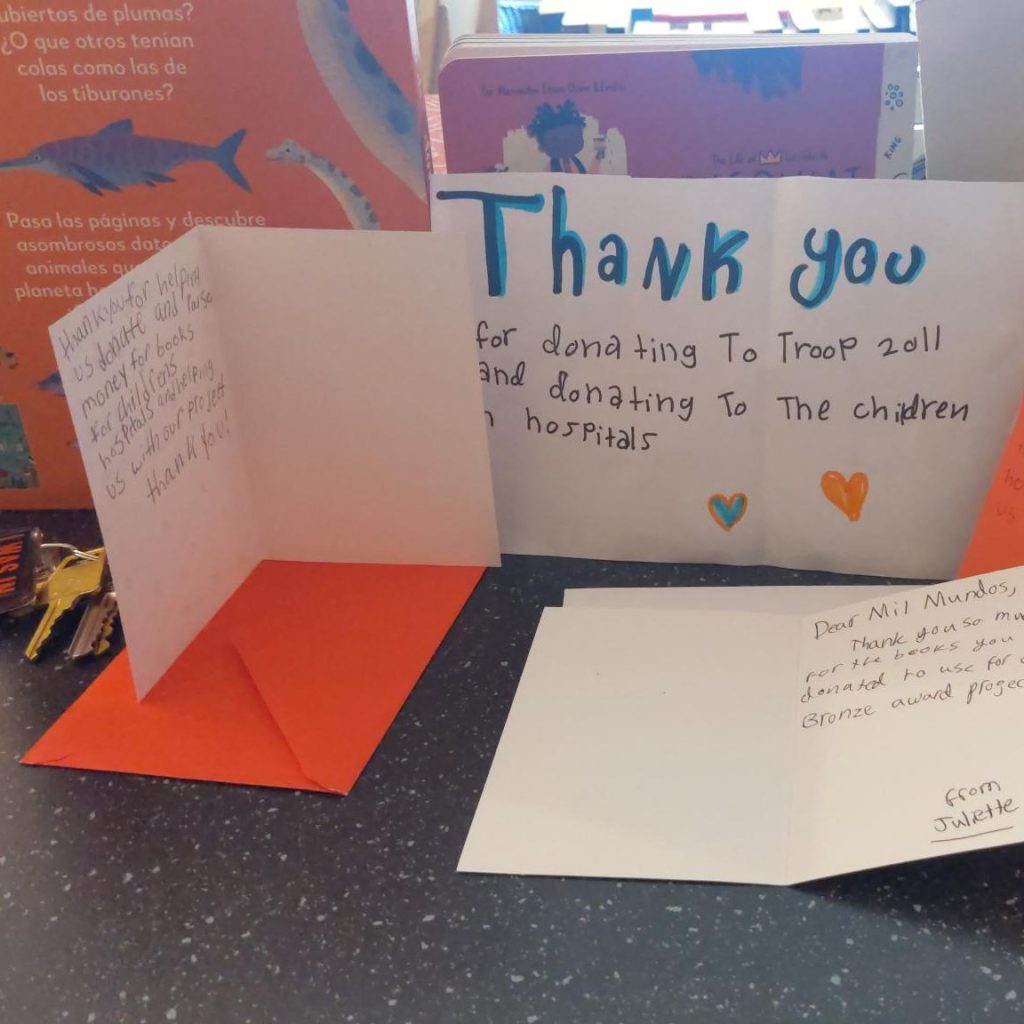 ubiertos de plumas?
¿O que otros tenían
colas como las de
los tiburones?
Pasa las páginas y descubre
asombrosos dato
animales qu
planeta h
The Life of
KING
Thank you
for donating To Troop 2011
and donating To The children
hospitals
thank you for helping
us donate and raise
money for books
for childrens
hospitals and helping
us with our project
thank you!
WAS IN
Dear Mil Mundos,
Thank you so mu
for the books you
donated to use for
Bronze award projec
from
Juliette
ho
us